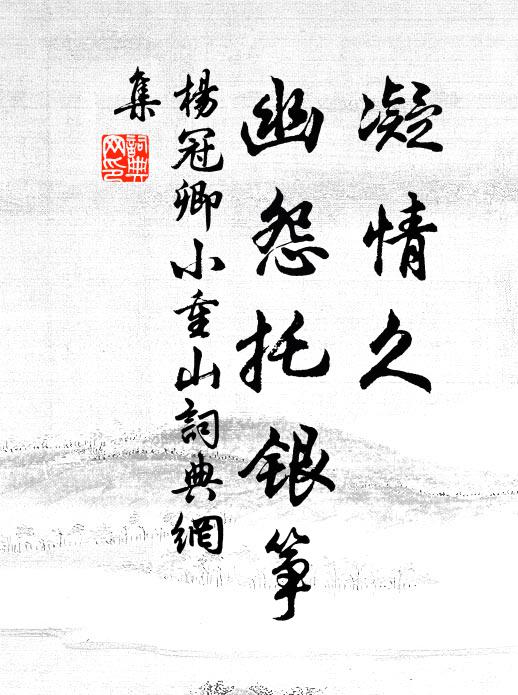 凝情久
幽怨托银筝
楊冠卿小重山詞典網
集
詞典
网印